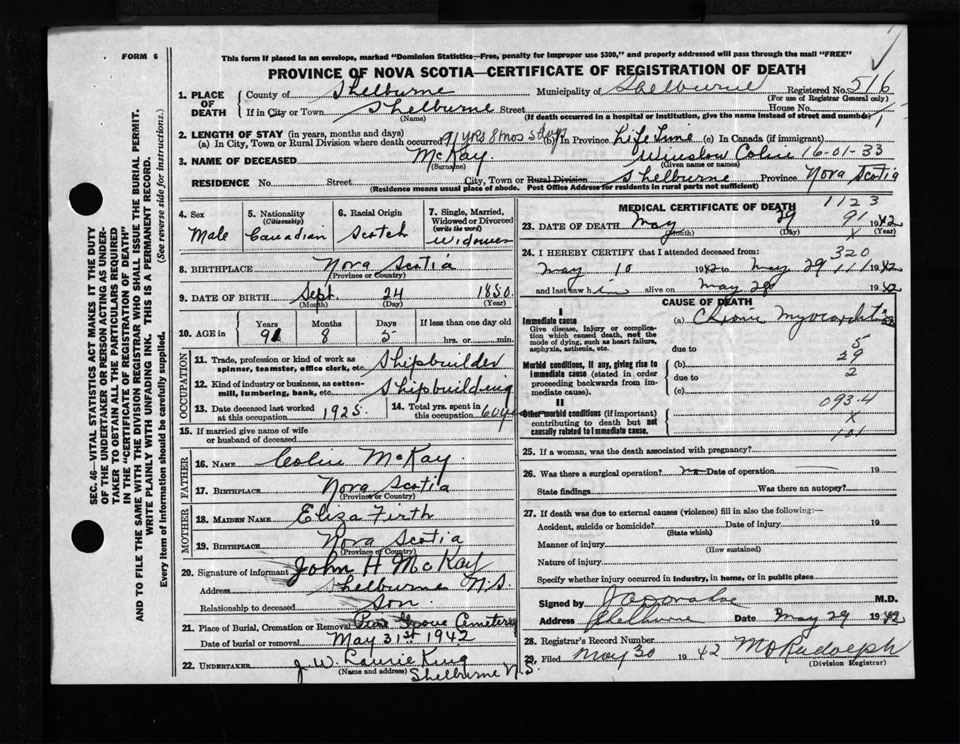 FORM 6
This form if placed in an envelope, marked "Dominion Statistics—Free, penalty for improper use $300," and properly addressed will pass through the mail "FREE"
PROVINCE OF NOVA SCOTIA—CERTIFICATE OF REGISTRATION OF DEATH
1. PLACE OF DEATH
County of Shelburne Municipality of Shelburne Registered No. 516
(For use of Registrar General only)
If in City or Town Shelburne Street House No.
(Name) (If death occurred in a hospital or institution, give the name instead of street and number)
2. LENGTH OF STAY (in years, months and days)
(a) In City, Town or Rural Division where death occurred 91 yrs 8 mos 5 days (b) In Province Life Time (c) In Canada (if immigrant)
3. NAME OF DECEASED McKay. Winslow Colin 16-01-33
(Surname) (Given name or names)
RESIDENCE No. Street City, Town or Rural Division Shelburne Province Nova Scotia
(Residence means usual place of abode. Post Office Address for residents in rural parts not sufficient)
4. Sex
Male
5. Nationality
(Citizenship)
Canadian
6. Racial Origin
Scotch
7. Single, Married, Widowed or Divorced
(write the word)
Widower
8. BIRTHPLACE Nova Scotia
(Province or Country)
9. DATE OF BIRTH Sept. 24 1850.
(Month) (Day) (Year)
10. AGE in
Years Months Days If less than one day old
91 8 5 hrs. or min.
OCCUPATION
11. Trade, profession or kind of work as spinner, teamster, office clerk, etc. Shipbuilder
12. Kind of industry or business, as cotton-mill, lumbering, bank, etc. Shipbuilding
13. Date deceased last worked at this occupation 1925.
14. Total yrs. spent in this occupation 60
15. If married give name of wife or husband of deceased
FATHER
16. NAME Colin McKay.
17. BIRTHPLACE Nova Scotia
(Province or Country)
MOTHER
18. MAIDEN NAME Eliza Firth
19. BIRTHPLACE Nova Scotia
(Province or Country)
20. Signature of informant John H McKay
Address Shelburne N.S.
Relationship to deceased Son.
21. Place of Burial, Cremation or Removal Pine Grove Cemetery
Date of burial or removal May 31st 1942
22. UNDERTAKER J. W. King
(Name and address) Shelburne N.S.
MEDICAL CERTIFICATE OF DEATH 1123
23. DATE OF DEATH May 29 91 1942
(Month) (Day) x (Year)
24. I HEREBY CERTIFY that I attended deceased from 320
May 10 1942 to May 29 111 1942
and last saw him alive on May 28 1942
CAUSE OF DEATH
I
Immediate cause (a) Chronic Myocarditis
Give disease, injury or complication which caused death, not the mode of dying, such as heart failure, asphyxia, asthenia, etc.
due to 5
29
Morbid conditions, if any, giving rise to immediate cause (stated in order proceeding backwards from immediate cause).
(b) 2
due to
(c)
093.4
II
Other morbid conditions (if important) contributing to death but not causally related to immediate cause.
x
101
25. If a woman, was the death associated with pregnancy?
26. Was there a surgical operation? no Date of operation — 19
State findings Was there an autopsy?
27. If death was due to external causes (violence) fill in also the following:—
Accident, suicide or homicide? Date of injury 19
(State which)
Manner of injury
(How sustained)
Nature of injury
Specify whether injury occurred in industry, in home, or in public place
Signed by M.D.
Address Shelburne Date May 29 1942
28. Registrar's Record Number
29. Filed May 30 1942
(Division Registrar)
SEC. 46—VITAL STATISTICS ACT MAKES IT THE DUTY
OF THE UNDERTAKER OR PERSON ACTING AS UNDER-
TAKER TO OBTAIN ALL THE PARTICULARS REQUIRED
IN THE "CERTIFICATE OF REGISTRATION OF DEATH"
AND TO FILE THE SAME WITH THE DIVISION REGISTRAR WHO SHALL ISSUE THE BURIAL PERMIT.
WRITE PLAINLY WITH UNFADING INK. THIS IS A PERMANENT RECORD.
Every item of information should be carefully supplied. (See reverse side for instructions.)